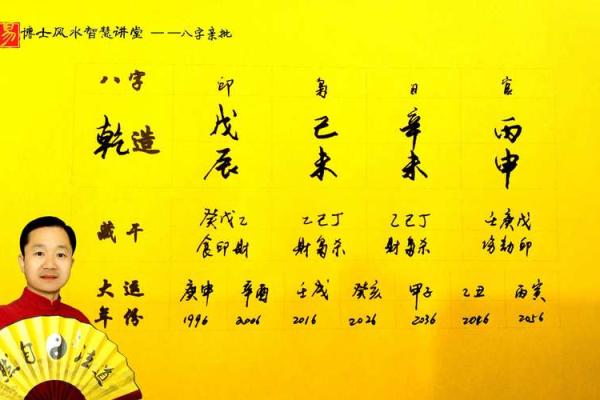 易 博士风水智慧讲堂 ——八字亲批
八字 印 枭 日 官
乾造 戊辰 己未 辛未 丙申
藏干 癸戊乙 乙己丁 乙己丁 壬庚戊
食印财 财枭杀 财枭杀 伤劫印
大运 庚申 辛酉 壬戌 癸亥 甲子 乙丑 丙寅
年份 1996 2006 2016 2026 2036 2046 2056
自 法道